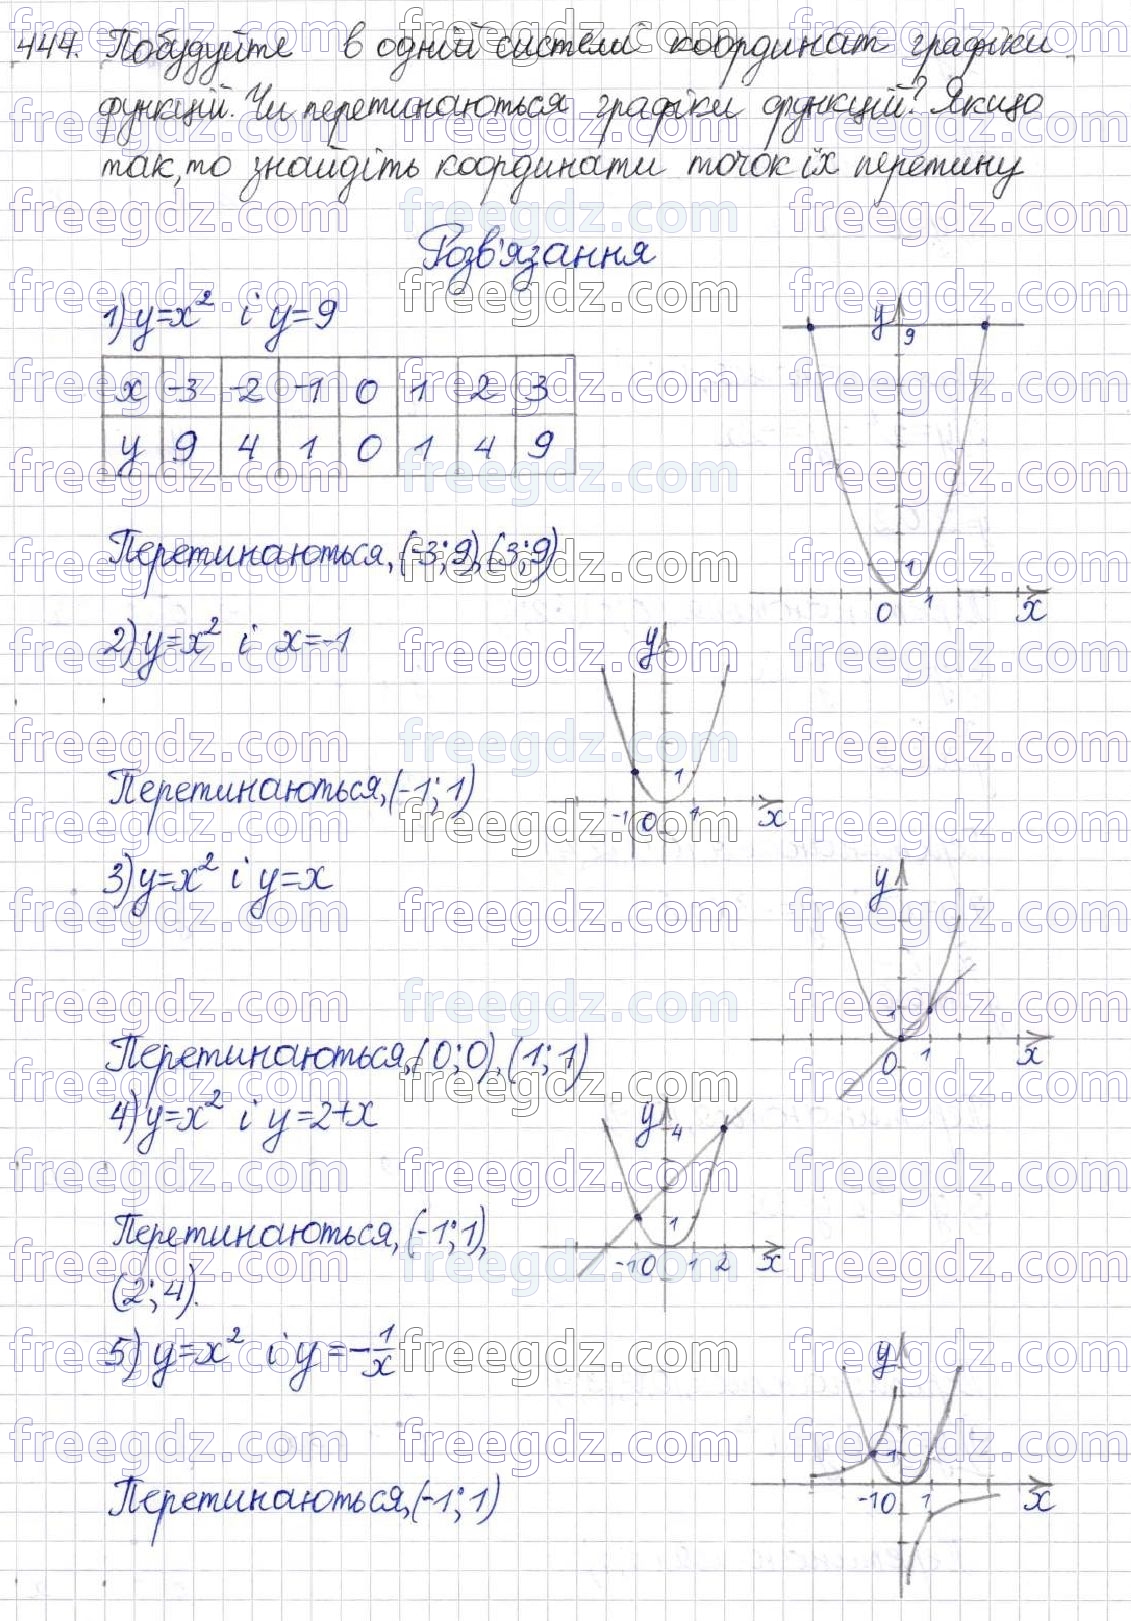 444. Побудуйте в одній системі координат графіки
функцій. Чи перетинаються графіки функцій? Якщо
так, то знайдіть координати точок їх перетину
Розв'язання
1) y=x² і y=9
x -3 -2 -1 0 1 2 3
y 9 4 1 0 1 4 9
Перетинаються, (-3;9), (3;9)
y 9
1
0 1 x
2) y=x² і x=-1
y
1
-1 0 1 x
Перетинаються, (-1;1)
3) y=x² і y=x
y
1
0 1 x
Перетинаються, (0;0), (1;1)
4) y=x² і y=2+x
y 4
1
-1 0 1 2 x
Перетинаються, (-1;1),
(2;4).
5) y=x² і y=-1/x
y
1
-1 0 1 x
Перетинаються, (-1;1)
freegdz.com